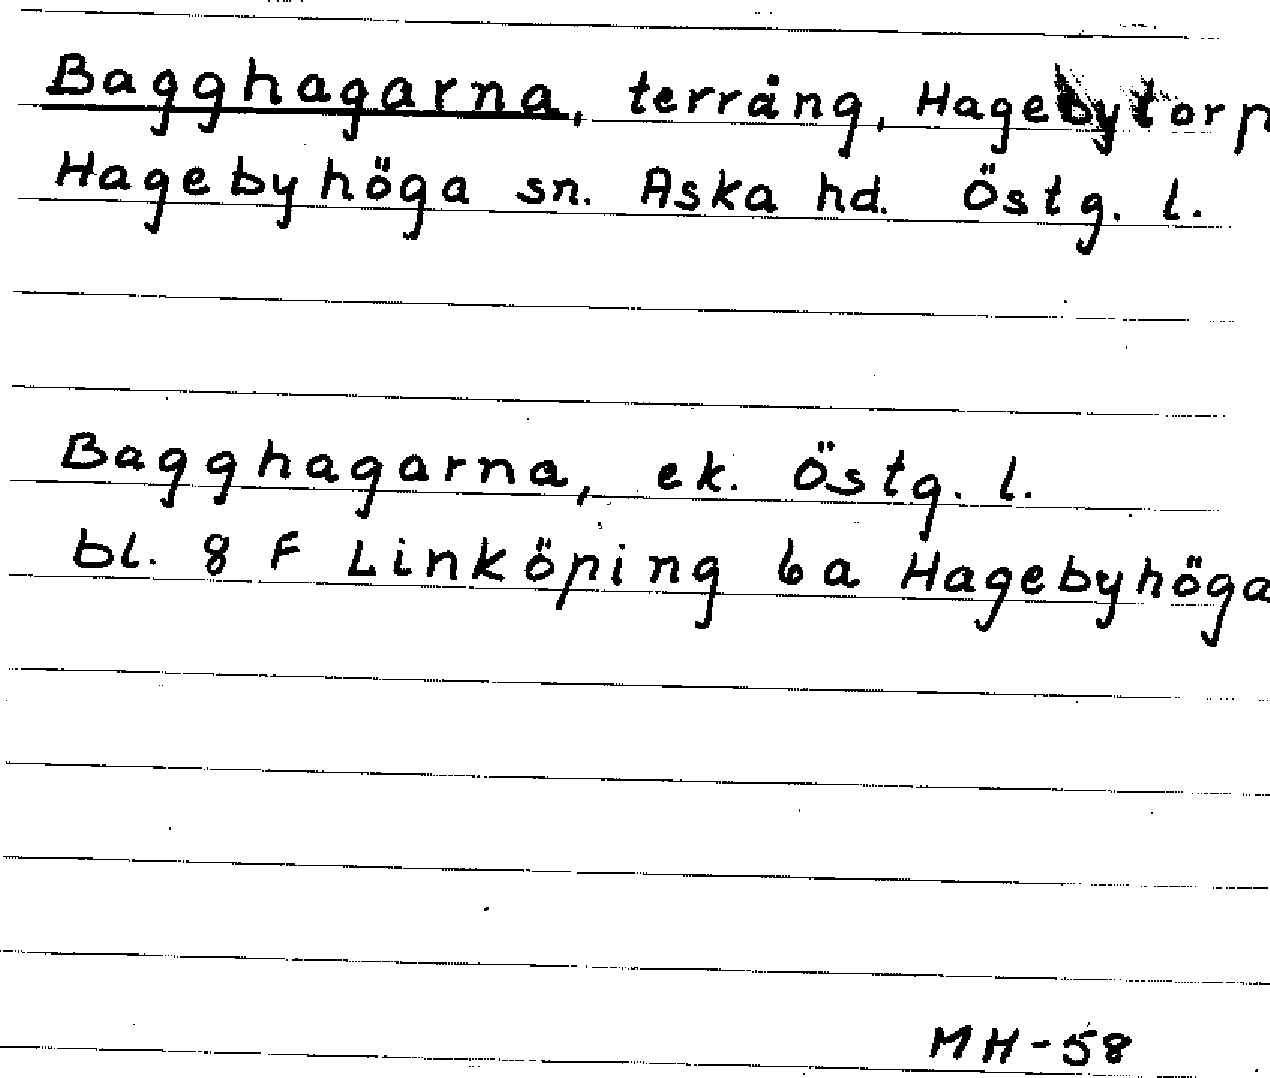 Bagghagarna, terräng, Hagebytorp
Hagebyhöga sn. Aska hd. Östg. l.
Bagghagarna, ek. Östg. l.
bl. 8 F Linköping 6a Hagebyhöga
MH-58